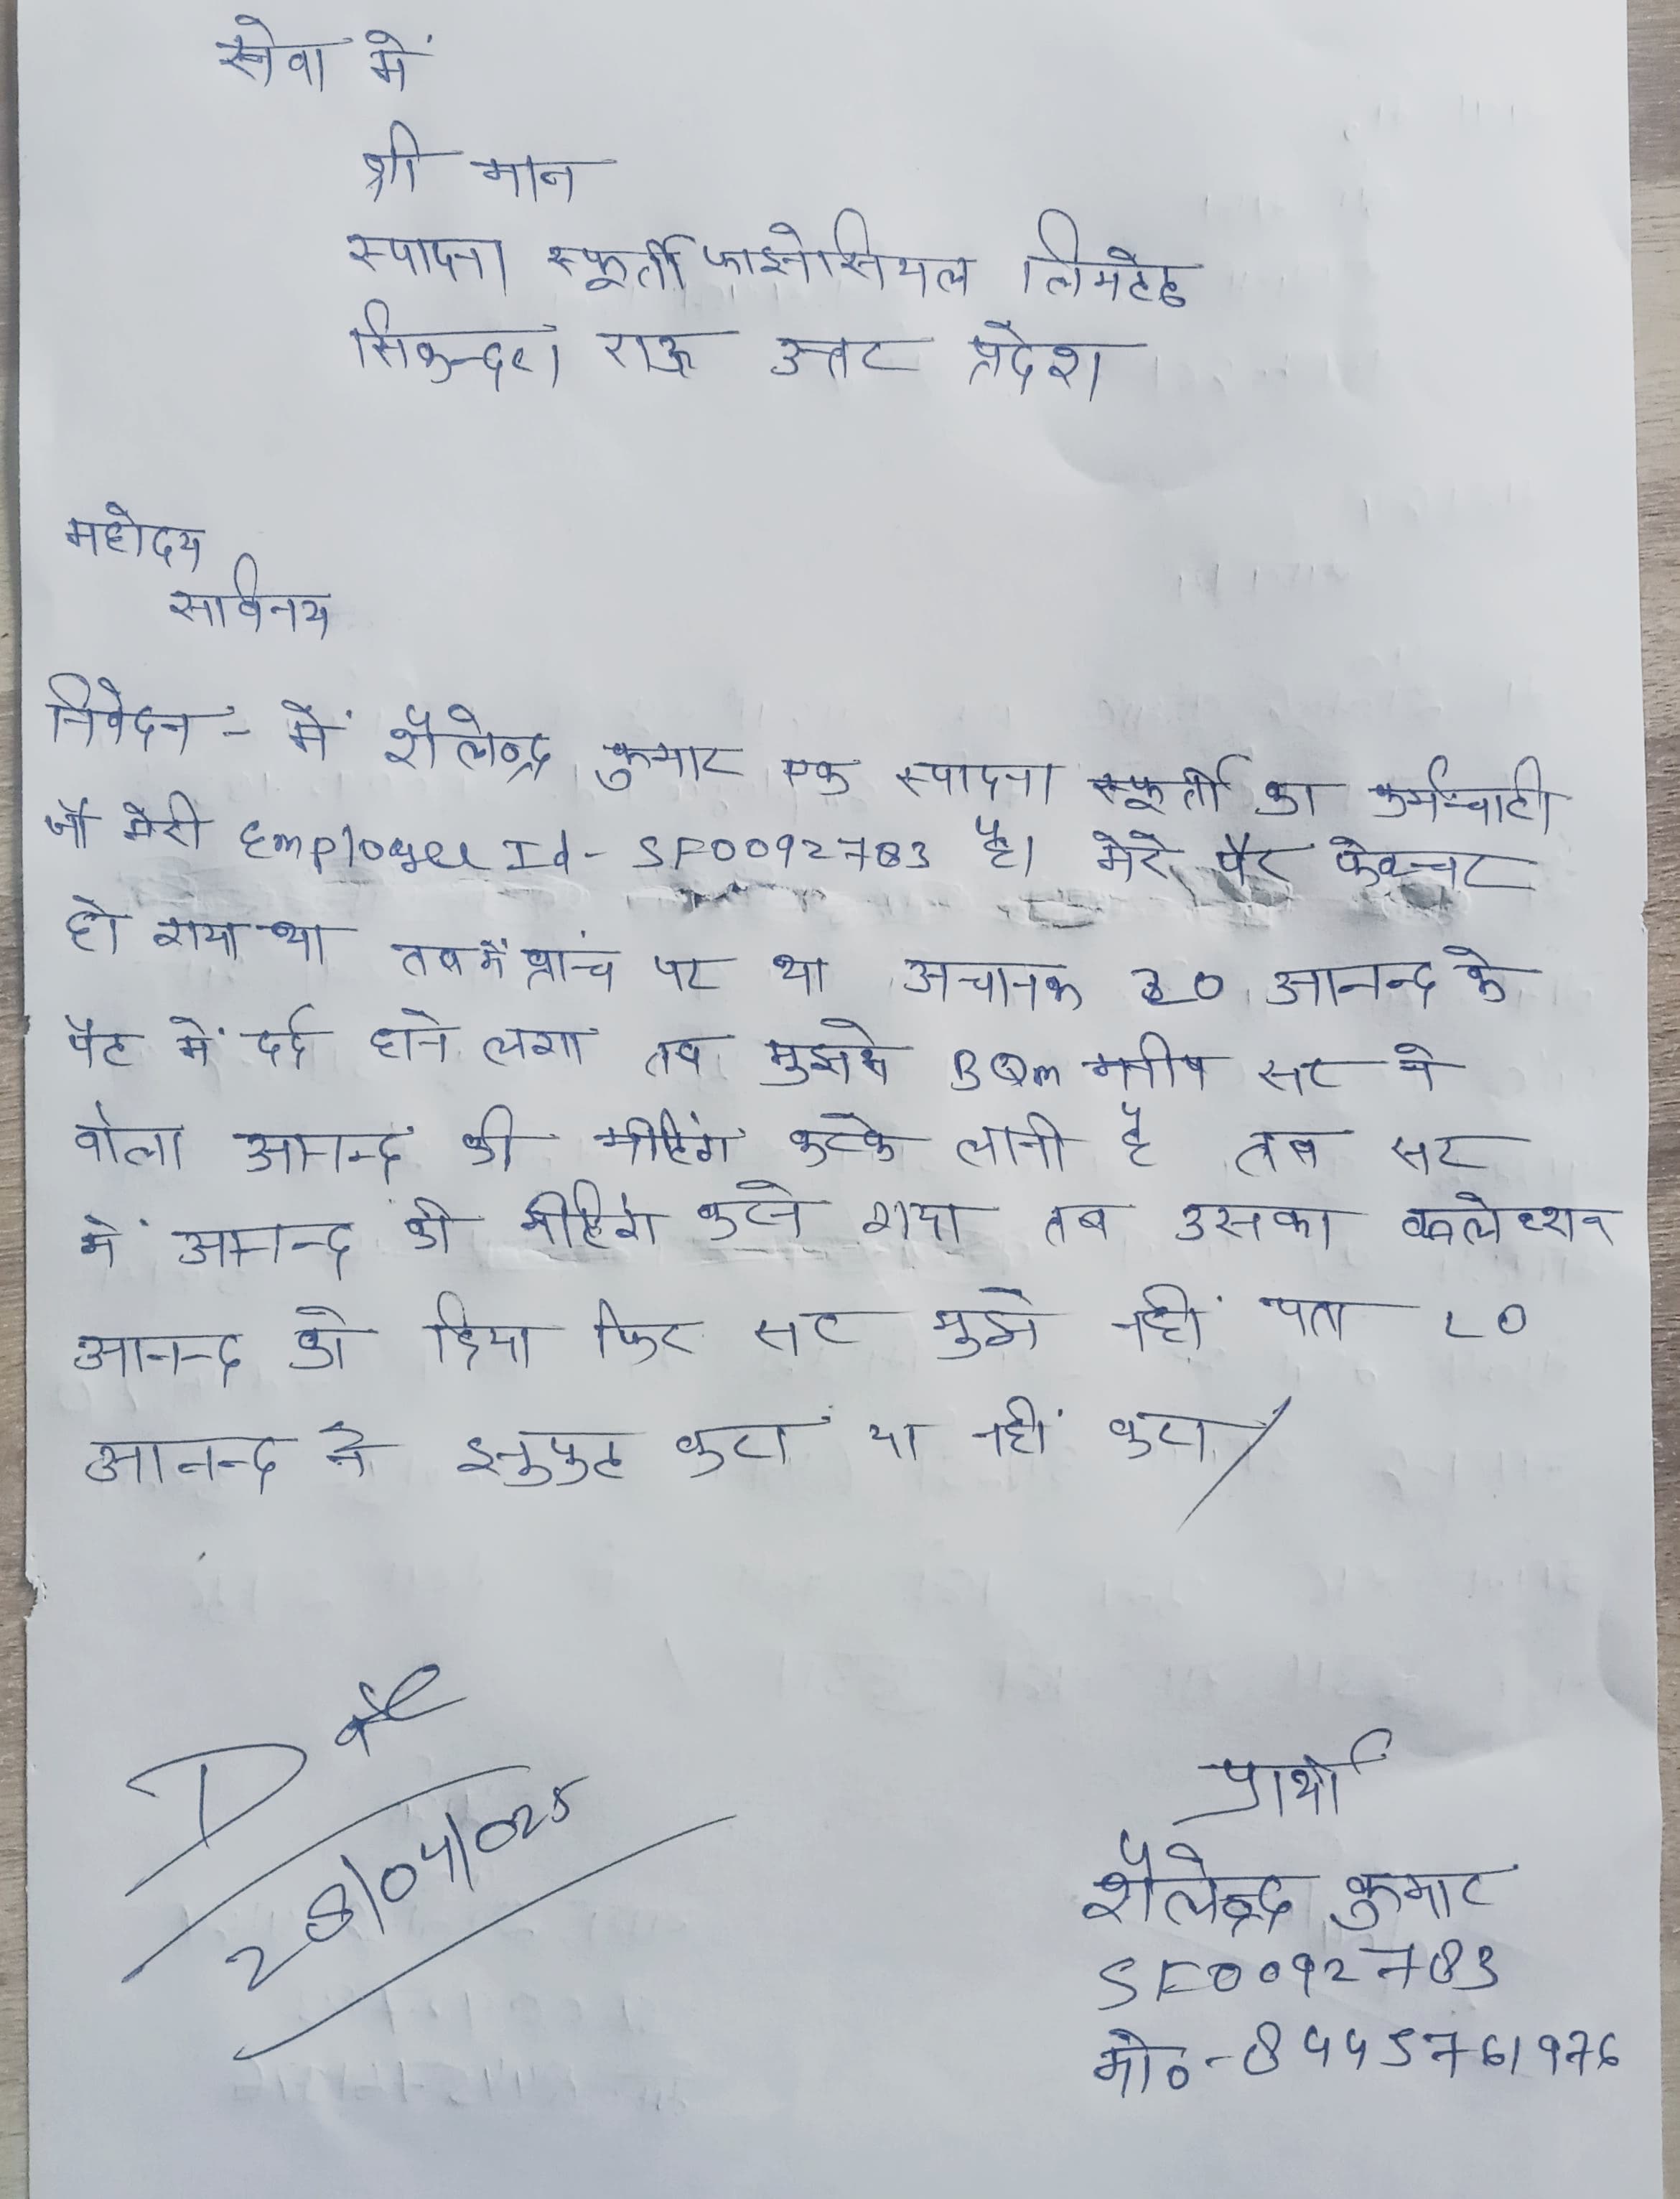 सेवा में
श्री मान
स्पादना स्फूर्ती फाइनेंसियल लिमटेड
सिकन्दरा राऊ उत्तर प्रदेश
महोदय
सविनय
निवेदन - में शैलेन्द्र कुमार एक स्पादना स्फूर्ती का कर्मचारी
जो मेरी Employee Id - SF0092783 है। मेरे पैर फेक्चर
हो गया था तब में ब्रांच पर था अचानक LO आनन्द के
पेट में दर्द होने लगा तब मुझसे BQM मनीष सर ने
बोला आनन्द की मीटिंग करके लानी है तब सर
में आनन्द की मीटिंग करने गया तब उसका कलेक्शन
आनन्द को दिया फिर सर मुझे नहीं पता LO
आनन्द ने इनुपुट करा या नहीं करा
28/04/025
प्रार्थी
शैलेन्द्र कुमार
SF0092783
मो० - 8445761976